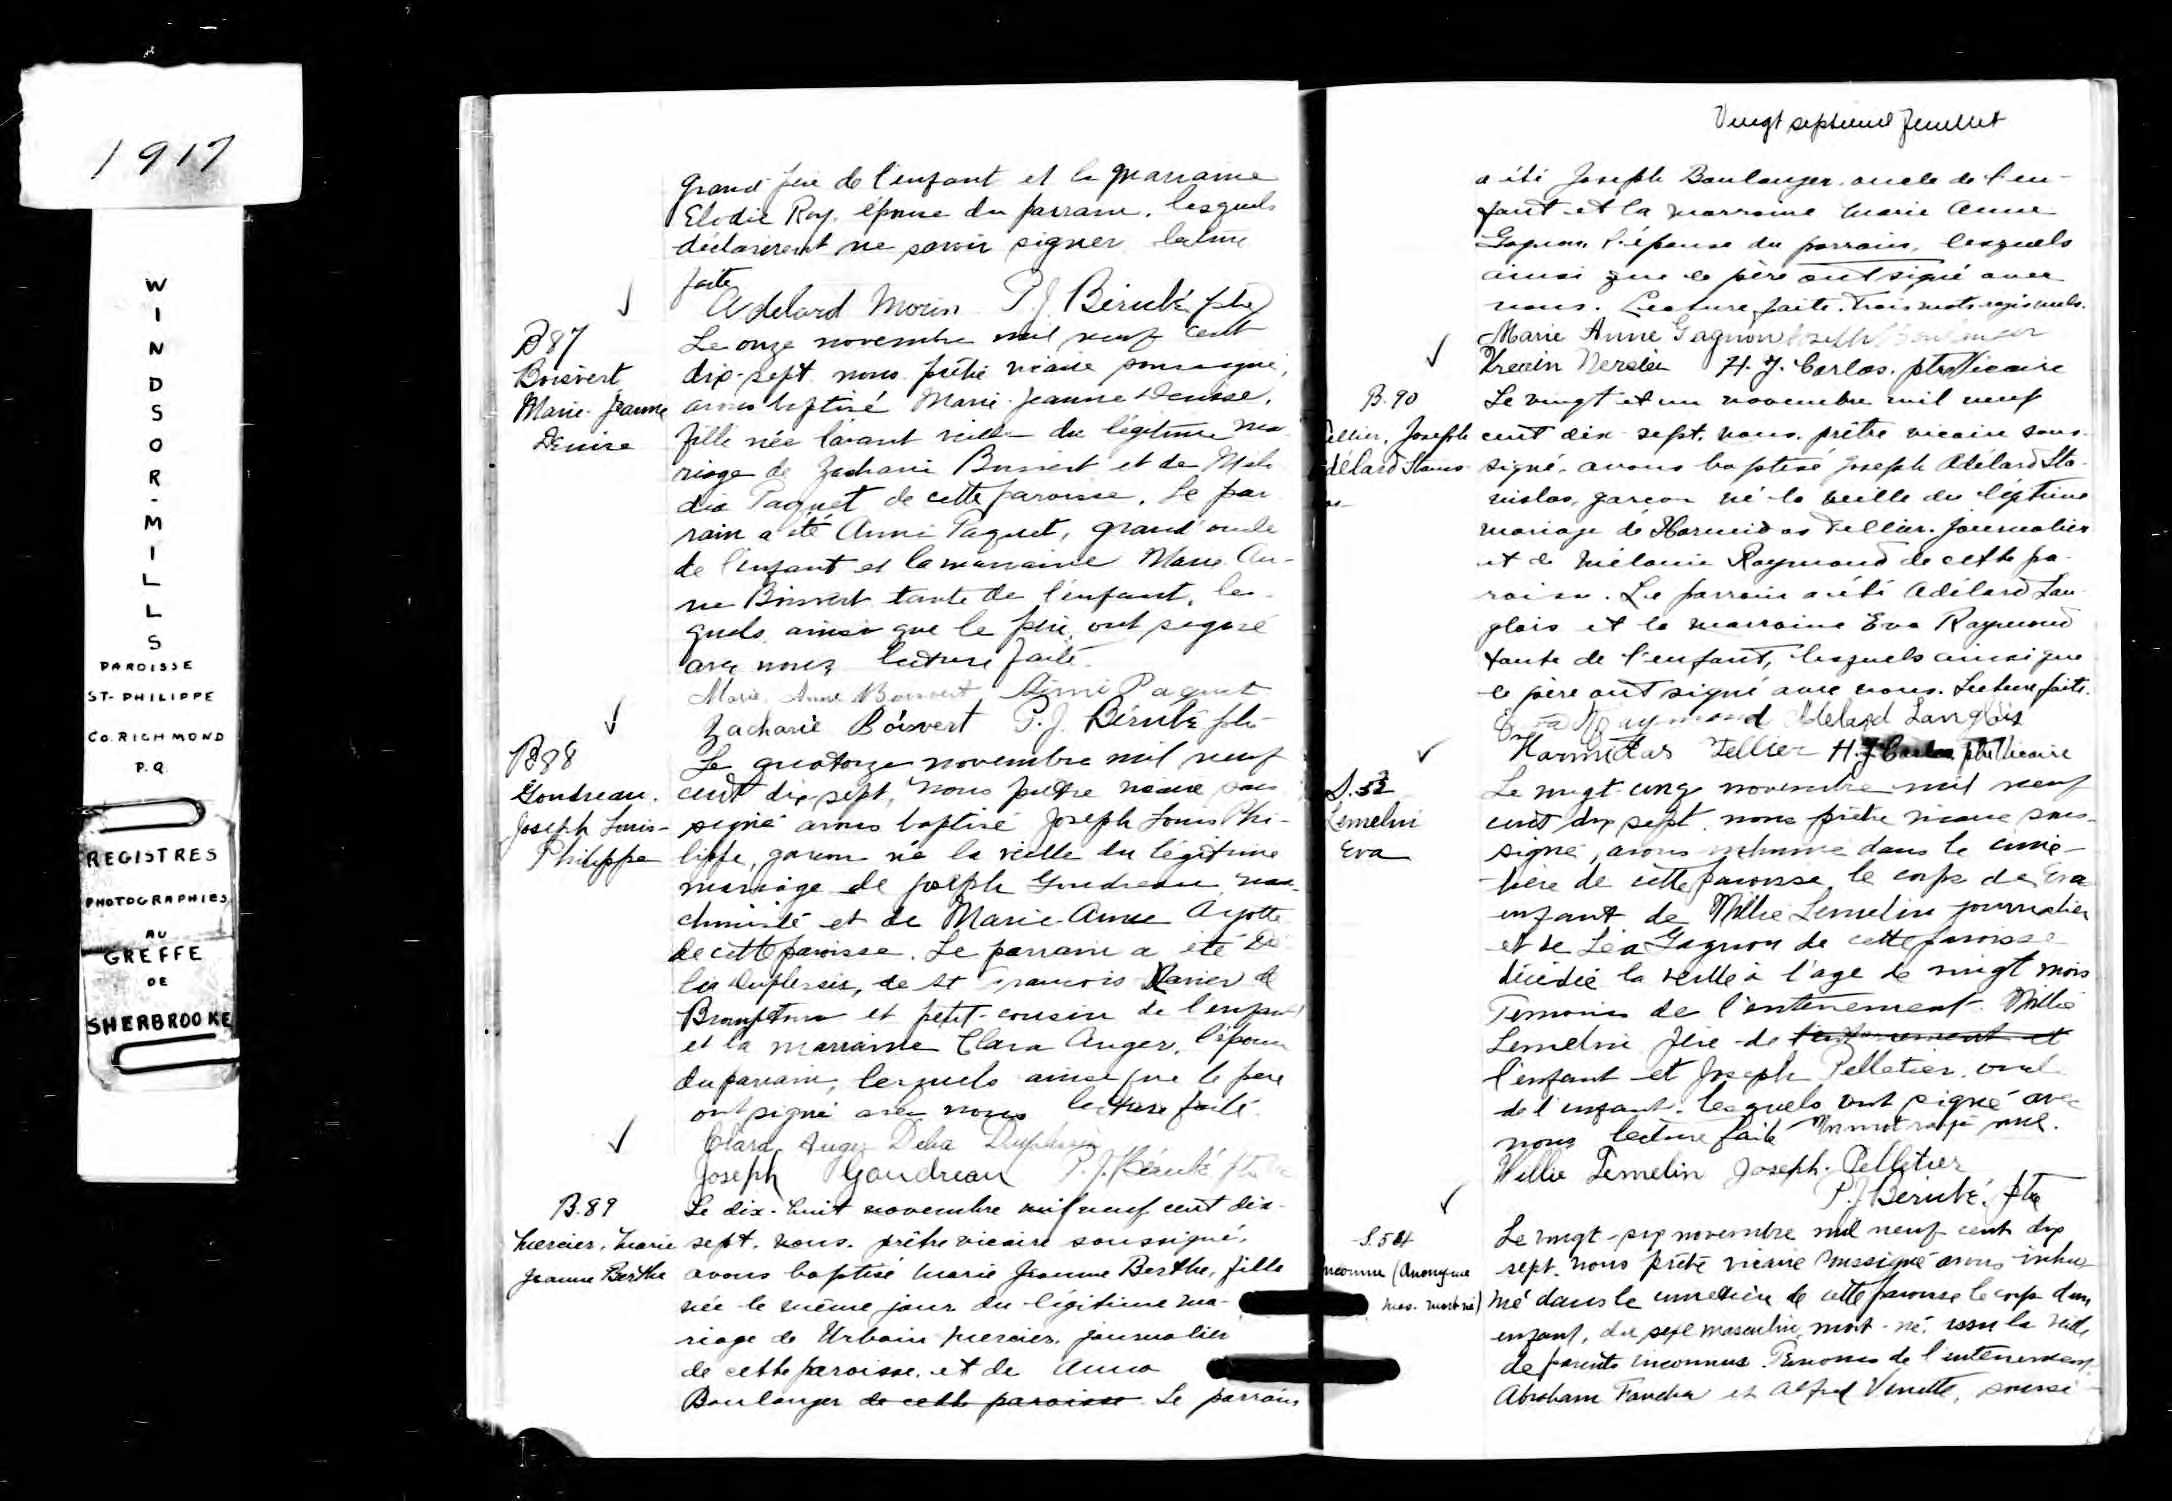 1917
WINDSOR-MILLS
PAROISSE
ST-PHILIPPE
CO. RICHMOND
P.Q.
REGISTRES
PHOTOGRAPHIES
AU
GREFFE
DE
SHERBROOKE
grand père de l'enfant et la marraine
Elodie Roy, épouse du parrain, lesquels
déclarèrent ne savoir signer lecture
faite
Adelard Morin P.J. Bérubé ptre
B87
Boisvert
Marie-Jeanne
Denise
Le onze novembre mil neuf cent
dix-sept nous prêtre vicaire soussigné,
avons baptisé Marie-Jeanne Denise,
fille née l'avant veille du légitime ma-
riage de Zacharie Boisvert et de
Paquet de cette paroisse. Le par-
rain a été Aimé Paquet, grand'oncle
de l'enfant et la marraine Marie An-
ne Boisvert tante de l'enfant, les-
quels ainsi que le père ont signé
avec nous lecture faite.
Marie Anne Boisvert Aimé Paquet
Zacharie Boisvert P.J. Bérubé ptre
B88
Goudreau.
Joseph Louis-
Philippe
Le quatorze novembre mil neuf
cent dix sept, nous prêtre vicaire sous
signé avons baptisé Joseph Louis Phi-
lippe, garçon né la veille du légitime
mariage de Joseph Goudreau ma-
chiniste et de Marie-Anne Ayotte
de cette paroisse. Le parrain a été Dé
lia Duplessis, de St François Xavier de
Brompton et petit-cousin de l'enfant
et la marraine Clara Auger, l'épouse
du parrain, lesquels ainsi que le père
ont signé avec nous lecture faite.
Clara Auger Delia Duplessis
Joseph Goudreau P.J. Bérubé ptre
B.89
Mercier, Marie
Jeanne Berthe
Le dix-huit novembre mil neuf cent dix-
sept, nous, prêtre vicaire soussigné,
avons baptisé Marie Jeanne Berthe, fille
née le même jour du légitime ma-
riage de Urbain Mercier, journalier
de cette paroisse, et de Anna
Boulanger de cette paroisse. Le parrain
Vingt septième feuillet
a été Joseph Boulanger, oncle de l'en-
fant et la marraine Marie Anne
Gagnon l'épouse du parrain, lesquels
ainsi que le père ont signé avec
nous. Lecture faite. Trois mots rayés nuls.
Marie Anne Gagnon Joseph Boulanger
Urbain Mercier H.J. Carlos. ptre Vicaire
B.90
Tellier, Joseph
Adélard Stanis-
Le vingt et un novembre mil neuf
cent dix sept, nous, prêtre vicaire sous-
signé, avons baptisé Joseph Adélard Sta-
nislas, garçon né la veille du légitime
mariage de Hormidas Tellier, journalier
et de Mélanie Raymond de cette pa-
roisse. Le parrain a été Adélard Lan-
glois et la marraine Eva Raymond
tante de l'enfant, lesquels ainsi que
le père ont signé avec nous. Lecture faite.
Eva Raymond Adelard Langlois
Hormidas Tellier H.J. Carlos ptre Vicaire
S.53
Lemelin
Eva
Le vingt-cinq novembre mil neuf
cent dix sept, nous prêtre vicaire sous-
signé, avons inhumé dans le cime-
tière de cette paroisse, le corps de Eva
enfant de Willie Lemelin journalier
et de Léa Gagnon de cette paroisse
décédée la veille à l'âge de vingt mois
Témoins de l'enterrement Willie
Lemelin père de l'enterrement et
l'enfant et Joseph Pelletier oncle
de l'enfant, lesquels ont signé avec
nous lecture faite Un mot rayé nul.
Willie Lemelin Joseph Pelletier
P.J. Bérubé. ptre
S.54
Inconnu (Anonyme
mas. mort né)
Le vingt-six novembre mil neuf cent dix
sept, nous prêtre vicaire soussigné avons inhu-
mé dans le cimetière de cette paroisse le corps d'un
enfant, du sexe masculin, mort-né, issu la veille
de parents inconnus. Témoins de l'enterrement
Abraham et Alfred Venette, soussi-